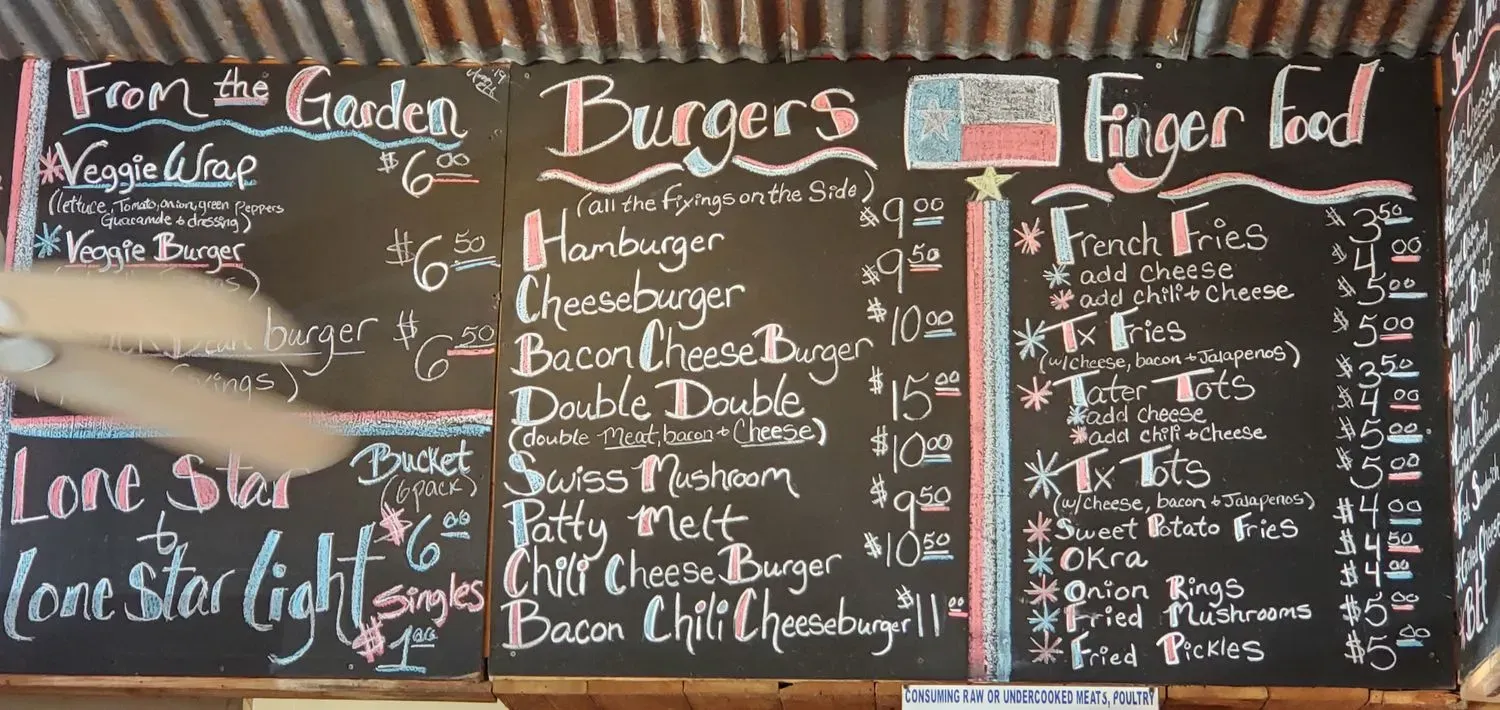 From the Garden
Veggie Wrap $6.00
(lettuce, Tomato, onion, green Peppers
Guacamole & dressing)
Veggie Burger $6.50
burger $6.50
Lone Star
&
Lone Star Light
Bucket
(6 pack)
$6.00
Singles
$1.00
Burgers
(all the Fixings on the Side)
Hamburger $9.00
Cheeseburger $9.50
Bacon Cheese Burger $10.00
Double Double $15.00
(double Meat, bacon & Cheese)
Swiss Mushroom $10.00
Patty Melt $9.50
Chili Cheese Burger $10.50
Bacon Chili Cheeseburger $11.00
Finger Food
French Fries $3.50
add cheese $4.00
add chili & Cheese $5.00
Tx Fries $5.00
(w/cheese, bacon & Jalapenos)
Tater Tots $3.50
add cheese $4.00
add chili & Cheese $5.00
Tx Tots $5.00
(w/cheese, bacon & Jalapenos)
Sweet Potato Fries $4.00
Okra $4.50
Onion Rings $4.00
Fried Mushrooms $5.00
Fried Pickles $5.00
BLT
CONSUMING RAW OR UNDERCOOKED MEATS, POULTRY